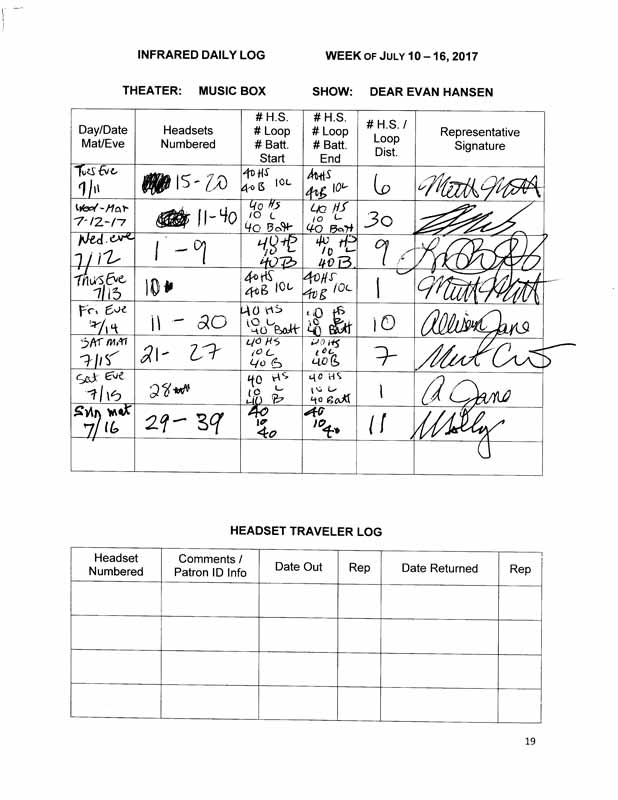 INFRARED DAILY LOG WEEK OF JULY 10 – 16, 2017
THEATER: MUSIC BOX SHOW: DEAR EVAN HANSEN
Day/Date Mat/Eve
Headsets Numbered
# H.S. # Loop # Batt. Start
# H.S. # Loop # Batt. End
# H.S. / Loop Dist.
Representative Signature
Tues Eve 7/11 15-20 40HS 40B 10L 40HS 40B 10L 6
Wed-Mat 7-12-17 11-40 40 HS 10 L 40 Batt 40 HS 10 L 40 Batt 30
Wed. eve 7/12 1 - 9 40B 40B. 9
Thurs Eve 7/13 10 40HS 40B 10L 40HS 40B 10L 1
Fri. Eve 7/14 11 - 20 40 HS 10 L 40 Batt 40 HS 10 L 40 Batt 10 Allison Jane
SAT MAT 7/15 21- 27 40 HS 10L 40 B 40HS 10L 40B 7
Sat Eve 7/15 28 40 HS 10 L 40 B 40 HS 10 L 40 Batt 1 A Jane
Sun mat 7/16 29 - 39 40 10 40 40 10 40 11 Molly
HEADSET TRAVELER LOG
Headset Numbered
Comments / Patron ID Info
Date Out
Rep
Date Returned
Rep
19